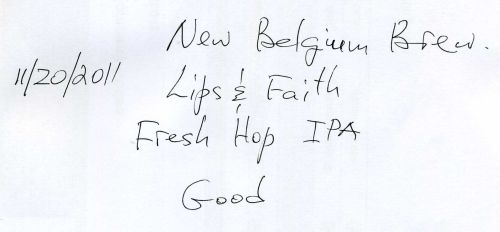 New Belgium Brew.
11/20/2011
Lips & Faith
Fresh Hop IPA
Good